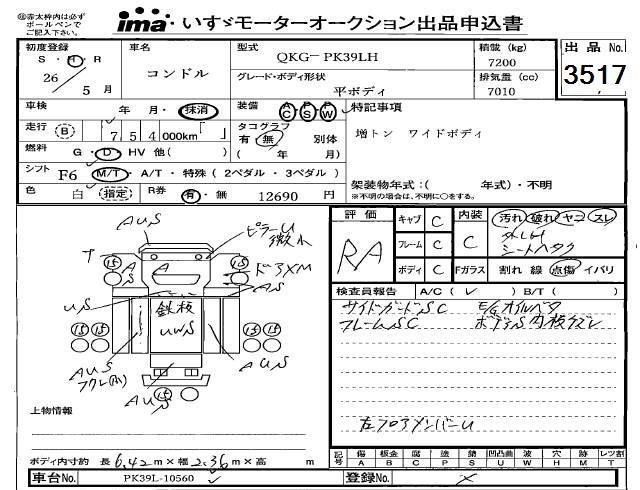 ㊟赤太枠内は必ず
ボールペンで
ご記入下さい。
ima いすゞモーターオークション出品申込書
初度登録 車名 型式 QKG-PK39LH 積載 (kg) 7200 出品 No.
S・H・R 26 5月 コンドル グレード・ボディ形状 平ボディ 排気量 (cc) 7010 3517
車検 年 月・抹消 装備 AC PS PW 特記事項
走行 (B) 7 5 4 000km タコグラフ 有・無 別体 ( 年 月) 増トン ワイドボディ
燃料 G・D・HV 他( )
シフト F6 M/T・A/T・特殊 (2ペダル・3ペダル) 架装物年式:( 年式)・不明
色 白 指定 R券 有・無 12690 円 ※不明の場合は、不明に○をする。
評価 RA キャブ C 内装 C 汚れ 破れ ヤニ スレ
フレーム C シートヘタク
ボディ C Fガラス 割れ 線 点傷 イバリ
検査員報告 A/C ( レ ) B/T ( )
サイドガードSC E/Gオイルベタ
フレームSC ボデーS内板イズレ
左フロアメンバーU
AUS
ピラーU
微れ
ドアXM
15 A A 15
S AS
US
鉄板
UWS
15 15 15 15
AUS
フクレ(小)
AUS
AUS
15
上物情報
ボディ内寸約 長 6.42 m×幅 2.36 m×高 m
記号 傷 A 板金 B 腐 C 塗 P 錆 S 凹凸曲 U 波 W 穴 H 跡 M レツ割 T
車台No. PK39L-10560 登録No.